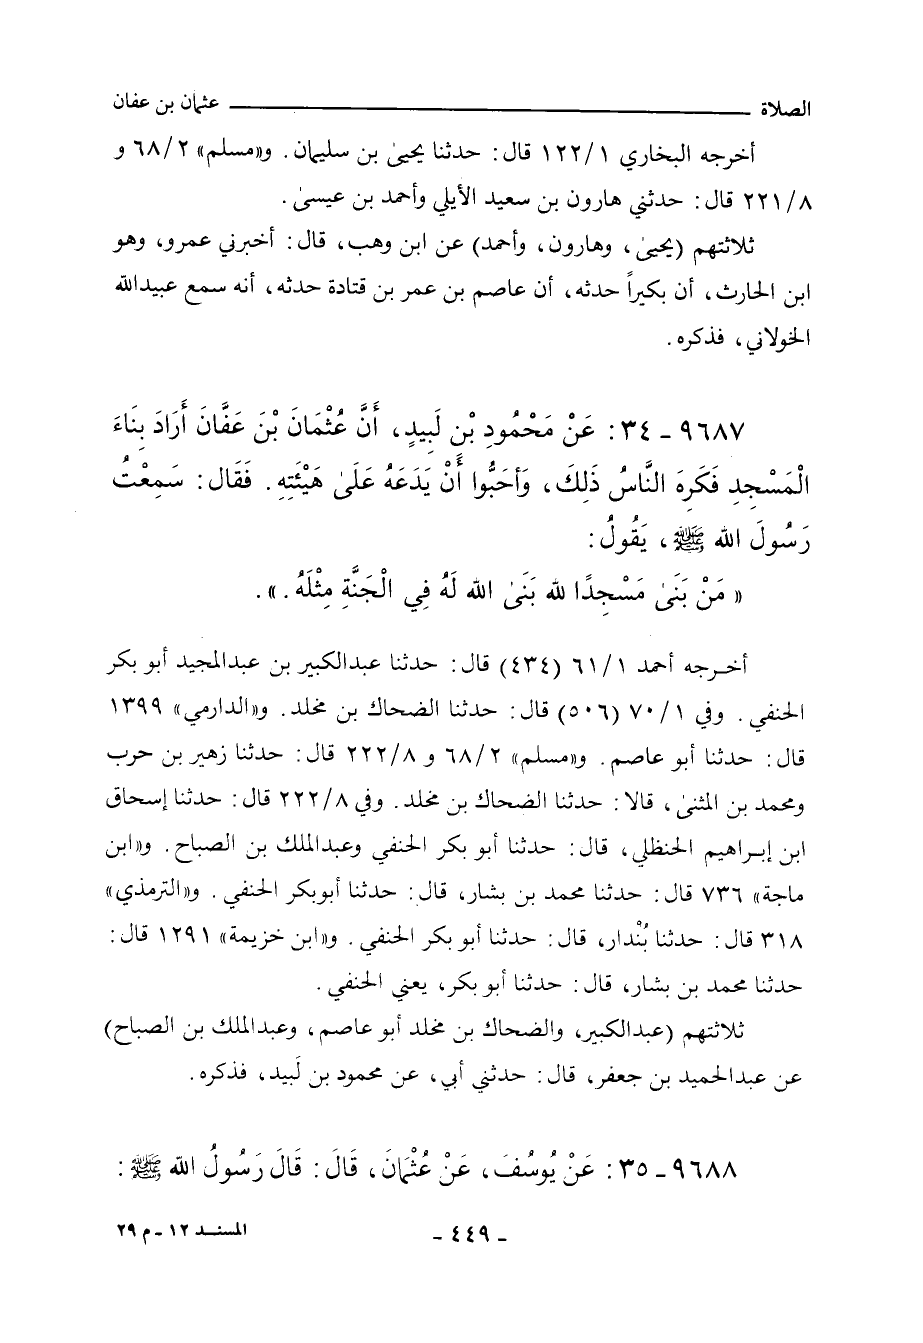 الصلاة ــــــــــــــــــــــ عثمان بن عفان
أخرجه البخاري ١٢٢/١ قال: حدثنا يحيىٰ بن سليمان. و«مسلم» ٦٨/٢ و
٢٢١/٨ قال: حدثني هارون بن سعيد الأيلي وأحمد بن عيسىٰ.
ثلاثتهم (يحيىٰ، وهارون، وأحمد) عن ابن وهب، قال: أخبرني عمرو، وهو
ابن الحارث، أن بكيراً حدثه، أن عاصم بن عمر بن قتادة حدثه، أنه سمع عبيدالله
الخولاني، فذكره.
٩٦٨٧ ـ ٣٤: عَنْ مَحْمُودِ بْنِ لَبِيدٍ، أَنَّ عُثْمَانَ بْنَ عَفَّانَ أَرَادَ بِنَاءَ
الْمَسْجِدِ فَكَرِهَ النَّاسُ ذَلِكَ، وَأَحَبُّوا أَنْ يَدَعَهُ عَلَىٰ هَيْئَتِهِ. فَقَالَ: سَمِعْتُ
رَسُولَ اللهِ ﷺ، يَقُولُ:
« مَنْ بَنَىٰ مَسْجِدًا لله بَنَىٰ الله لَهُ فِي الْجَنَّةِ مِثْلَهُ. ».
أخـرجه أحمد ٦١/١ (٤٣٤) قال: حدثنا عبدالكبير بن عبدالمجيد أبو بكر
الحنفي. وفي ٧٠/١ (٥٠٦) قال: حدثنا الضحاك بن مخلد. و«الدارمي» ١٣٩٩
قال: حدثنا أبو عاصم. و«مسلم» ٦٨/٢ و ٢٢٢/٨ قال: حدثنا زهير بن حرب
ومحمد بن المثنىٰ، قالا: حدثنا الضحاك بن مخلد. وفي ٢٢٢/٨ قال: حدثنا إسحاق
ابن إبـراهيم الحنظلي، قال: حدثنا أبو بكر الحنفي وعبدالملك بن الصباح. و«ابن
ماجة» ٧٣٦ قال: حدثنا محمد بن بشار، قال: حدثنا أبوبكر الحنفي. و«الترمذي»
٣١٨ قال: حدثنا بُنْدار، قال: حدثنا أبو بكر الحنفي. و«ابن خزيمة» ١٢٩١ قال:
حدثنا محمد بن بشار، قال: حدثنا أبو بكر، يعني الحنفي.
ثلاثتهم (عبدالكبير، والضحاك بن مخلد أبو عاصم، وعبدالملك بن الصباح)
عن عبدالحميد بن جعفر، قال: حدثني أبي، عن محمود بن لَبيد، فذكره.
٩٦٨٨ ـ ٣٥: عَنْ يُوسُفَ، عَنْ عُثْمَانَ، قَالَ: قَالَ رَسُولُ الله ﷺ:
ـ ٤٤٩ ـ
المسند ١٢ ـ م ٢٩